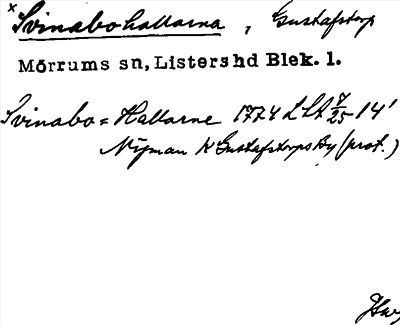 × Svinabohallarna, Gustafstorp
Mörrums sn, Listers hd Blek. l.
Svinabo=Hallarne 1774 LSA 7/25 14'
Nyman K Gustafstorps By (prot.)